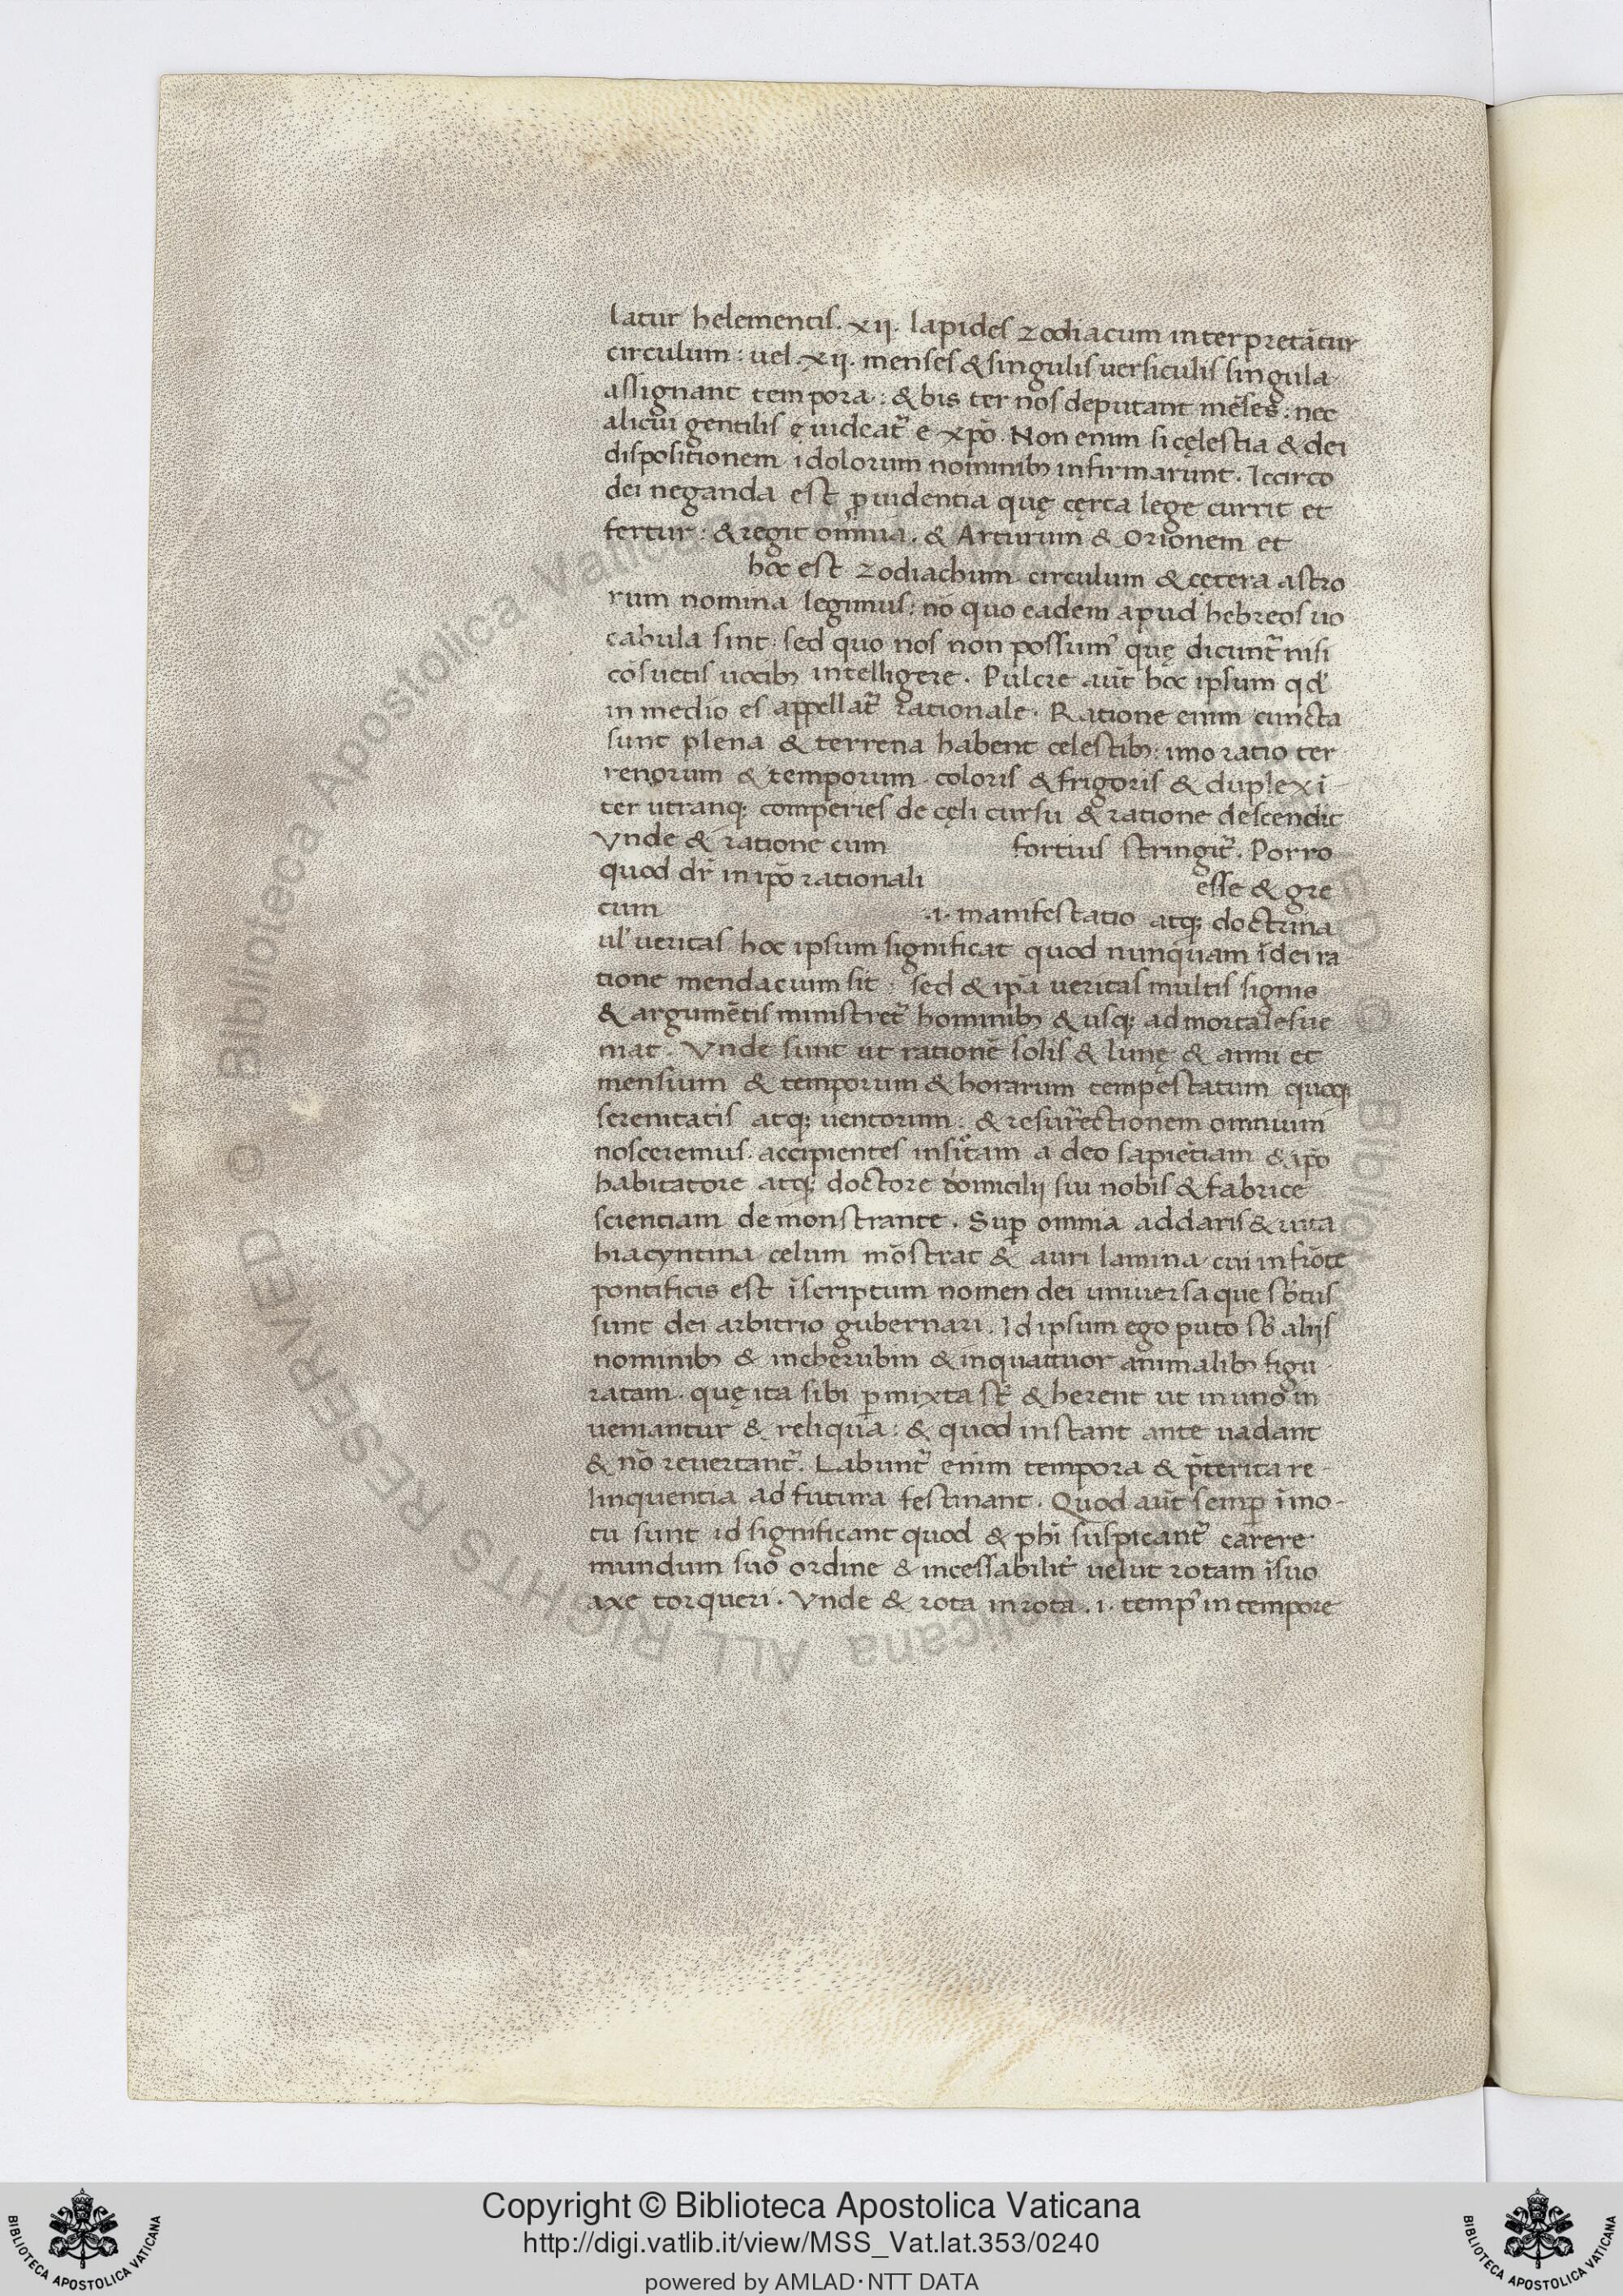 latur helementis. xii. lapides zodiacum interpretātur
circulum: uel. xii. menses & singulis uersiculis singula
assignant tempora: & bis ter nos deputant mēses: nec
alicui gentilis ę uideat᷑ e xpō. Non enim si cęlestia & dei
dispositionem idolorum nominib; infirmarunt. Iccirco
dei neganda est ꝓuidentia quę cęrta lege currit et
fertur: & regit omnia. & Arturum & Orionem et
hoc est zodiachum circulum & cętera astro
rum nomina legimus: nō quo eadem apud hebreos uo
cabula sint. sed quo nos non possum᾽ quę dicunt᷑ nisi
cōsuetis uocib; intelligere. Pulcre aūt hoc ipsum qd᾽
in medio es appellat᷑ rationale. Ratione enim cuncta
sunt plena & terrena habent celestib;: imo ratio ter
renorum & temporum coloris & frigoris & duplex ī
ter utranq; comperies de cęli cursu & ratione descendit
Vnde & ratione cum fortius stringit᷑. Porro
quod dr̄ in ip̄o rationali esse & gre
cum .i. manifestatio atq; doctrina
ul᾽ ueritas hoc ipsum significat quod nunquam ī dei ra
tione mendacium sit: sed & ip̄a ueritas multis signis
& argumētis ministret᷑ hominib; & usq; ad mortales ue
niat. Vnde sunt ut rationē solis & lunę & anni et
mensium & temporum & horarum tempestatum quoq;
serenitatis atq; uentorum: & resurrectionem omnium
nosceremus. accipientes insitam a deo sapiētiam & ip̄o
habitatore atq; doctore domicilij sui nobis & fabrice
scientiam demonstrante. Suꝑ omnia addaris & uita
hiacyntina celum mōstrat & auri lamina cui in frōte
pontificis est īscriptum nomen dei uniuersa que sb̄tus
sunt dei arbitrio gubernari. Id ipsum ego puto sb̄ alijs
nominib; & in cherubin & in quattuor animalib; figu
ratam. quę ita sibi ꝑmixta st̄ & herent ut in uno in
ueniantur & reliqua: & quod instant ante uadant
& nō reuertant᷑. Labunt᷑ enim tempora & p̄terita re-
linquentia ad futura festinant. Quod aūt semꝑ ī mo-
tu sunt id significant quod & ph̄i suspicant᷑ carere
mundum suo ordine & incessabilit᷑ uelut rotam ī suo
axe torqueri. Vnde & rota in rota .i. temp᾽ in tempore
Copyright © Biblioteca Apostolica Vaticana
http://digi.vatlib.it/view/MSS_Vat.lat.353/0240
powered by AMLAD·NTT DATA